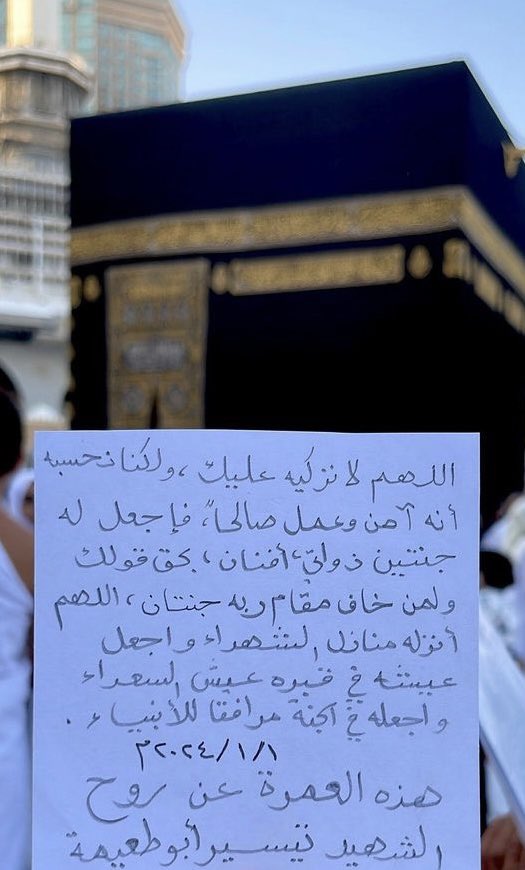 اللهم لا نزكيه عليك ، ولكنا نحسبه
أنه آمن وعمل صالحاً ، فإجعل له
جنتين ذواتي أفنان ، بحق قولك
ولمن خاف مقام ربه جنتان ، اللهم
أنزله منازل الشهداء واجعل
عيشه في قبره عيش السعداء
واجعله في الجنة مرافقا للأنبياء .
٢٠٢٤/١/١م
هذه العمرة عن روح
الشهيد تيسير أبو طعيمة